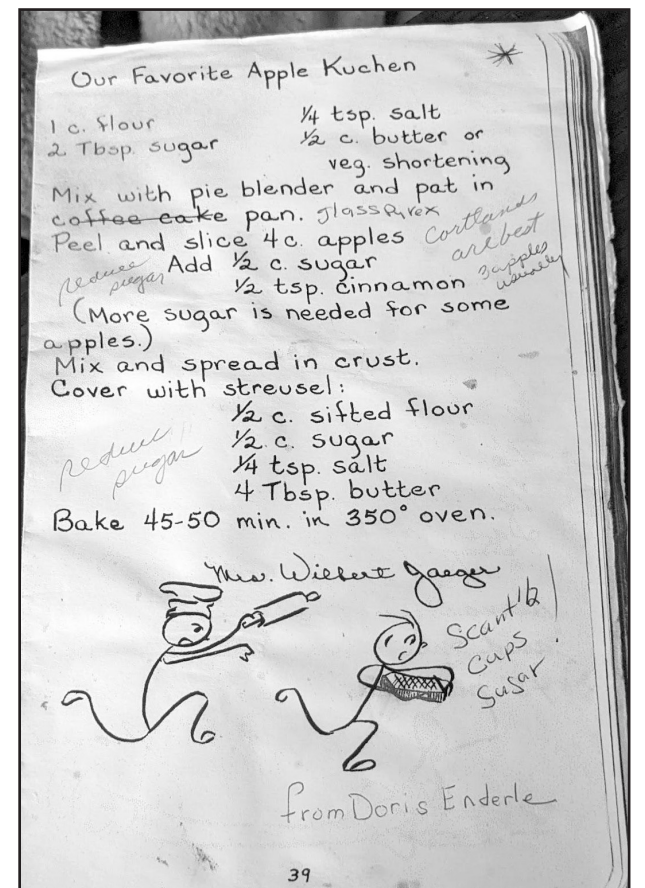 Our Favorite Apple Kuchen
1 c. flour
¼ tsp. salt
2 Tbsp. sugar
½ c. butter or
veg. shortening
Mix with pie blender and pat in
coffee cake pan. glass Pyrex
Peel and slice 4 c. apples
Cortlands
are best
Add ½ c. sugar
reduce
sugar
½ tsp. cinnamon
3 apples
usually
(More sugar is needed for some
apples.)
Mix and spread in crust.
Cover with streusel:
½ c. sifted flour
½ c. sugar
reduce
sugar
¼ tsp. salt
4 Tbsp. butter
Bake 45-50 min. in 350° oven.
Mrs. Wilbert Jaeger
Scant ½
Cups
Sugar
from Doris Enderle
39